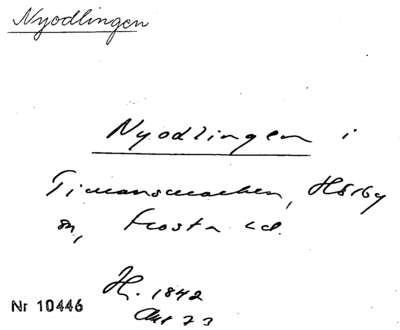 Nyodlingen
Nyodlingen i
Timansmachen, Hörby
sn, Frosta hd.
H. 1842
Nr 10446